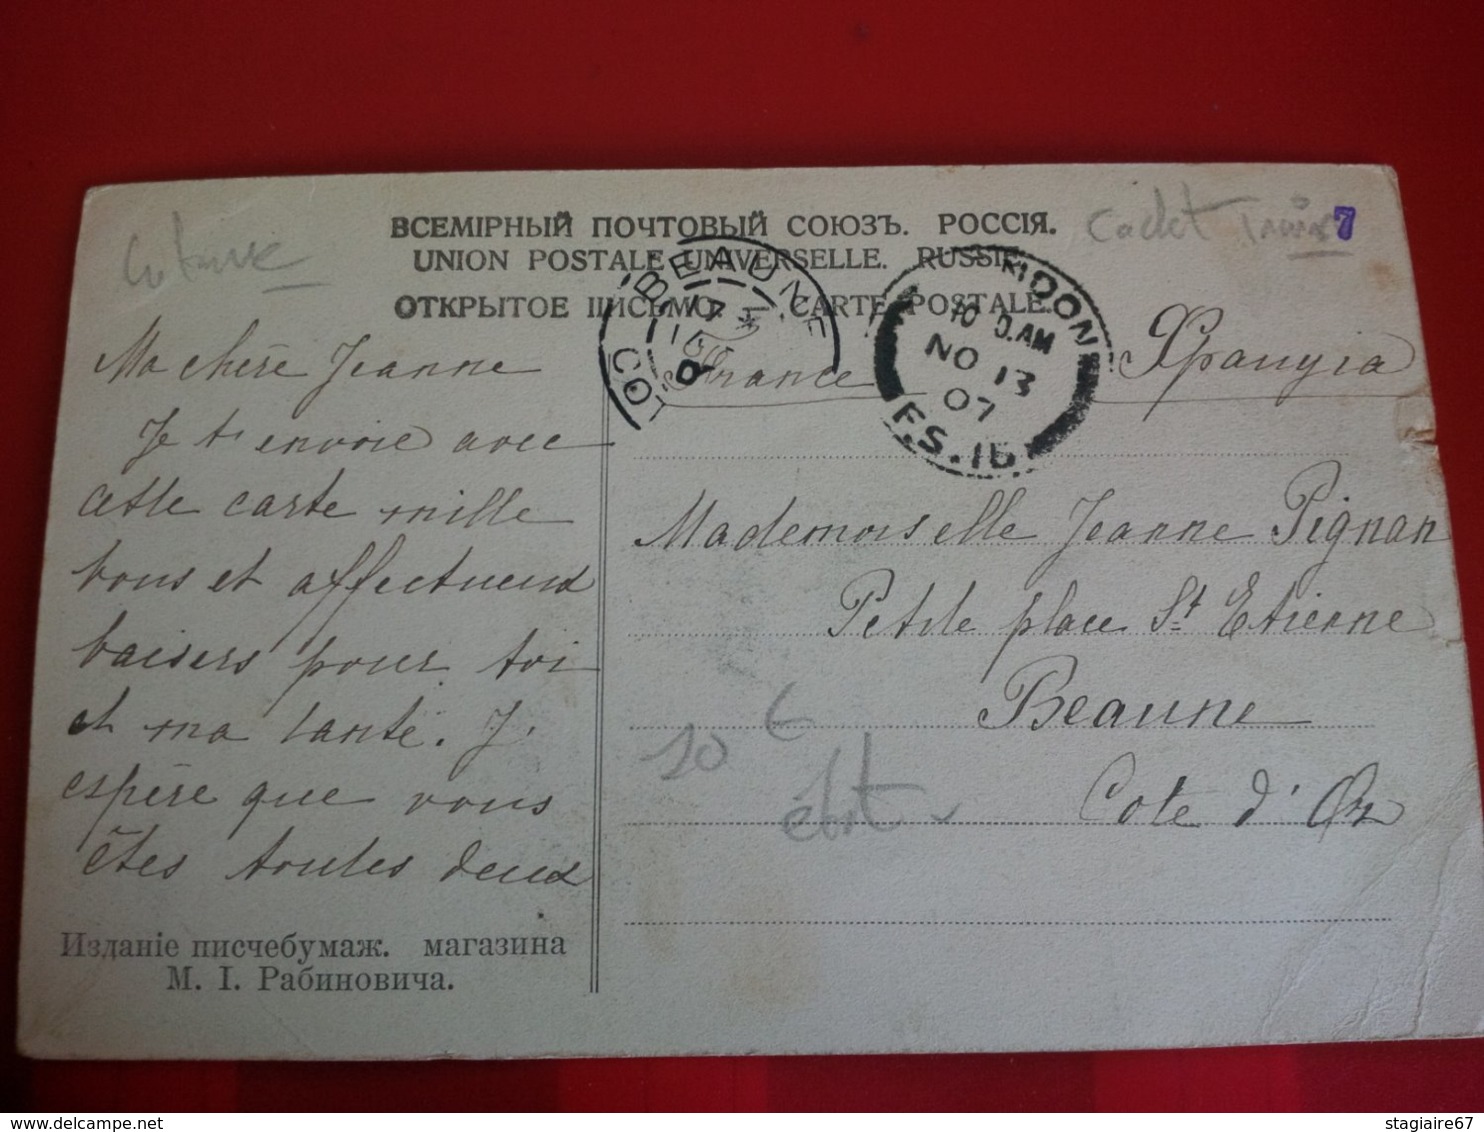 ВСЕМІРНЫЙ ПОЧТОВЫЙ СОЮЗЪ. РОССІЯ.
UNION POSTALE UNIVERSELLE. RUSSIE
ОТКРЫТОЕ ПИСЬМО. CARTE POSTALE.
Cachet 7
BEAUNE
MOON
10 AM
NO 13
07
F.S. 16
France
Ma chère Jeanne
Je t'envoie avec
cette carte mille
bons et affectueux
baisers pour toi
et ma tante. J'
espère que vous
êtes toutes deux
Mademoiselle Jeanne Pignan
Petite place St Etienne
Beaune
Cote d'Or
10 €
Изданіе писчебумаж. магазина
М. I. Рабиновича.
stagiaire67